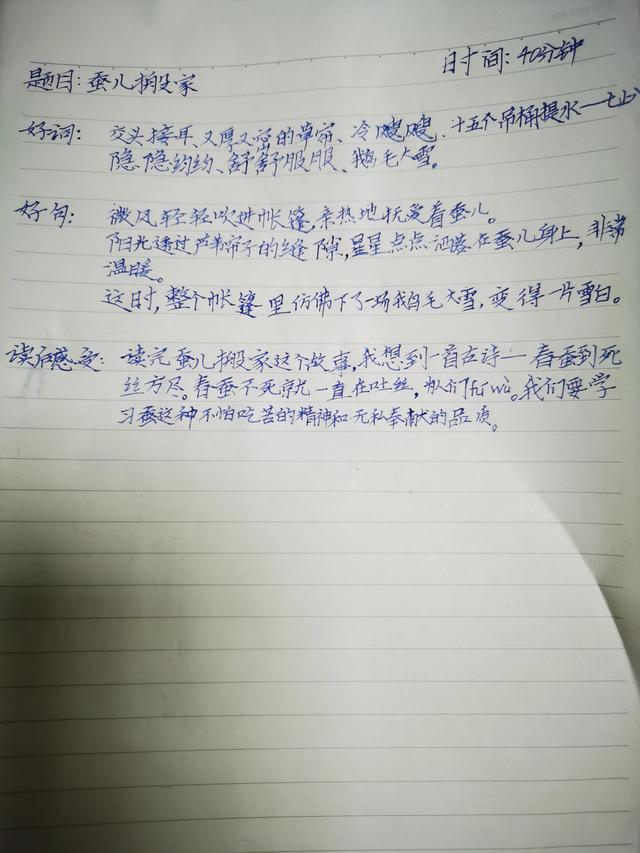 时间:40分钟
题目:蚕儿搬家
好词: 交头接耳、又厚又密的草帘、冷飕飕、十五个吊桶提水—七上
隐隐约约、舒舒服服、鹅毛大雪。
好句: 微风轻轻吹进帐篷,亲热地抚爱着蚕儿。
阳光透过芦苇帘子的缝隙,星星点点洒落在蚕儿身上,非常
温暖。
这时,整个帐篷里仿佛下了场鹅毛大雪,变得一片雪白。
读后感受: 读完蚕儿搬家这个故事,我想到一首古诗—春蚕到死
丝方尽。春蚕不死就一直在吐丝,为人们fú wù。我们要学
习蚕这种不怕吃苦的精神和无私奉献的品质。